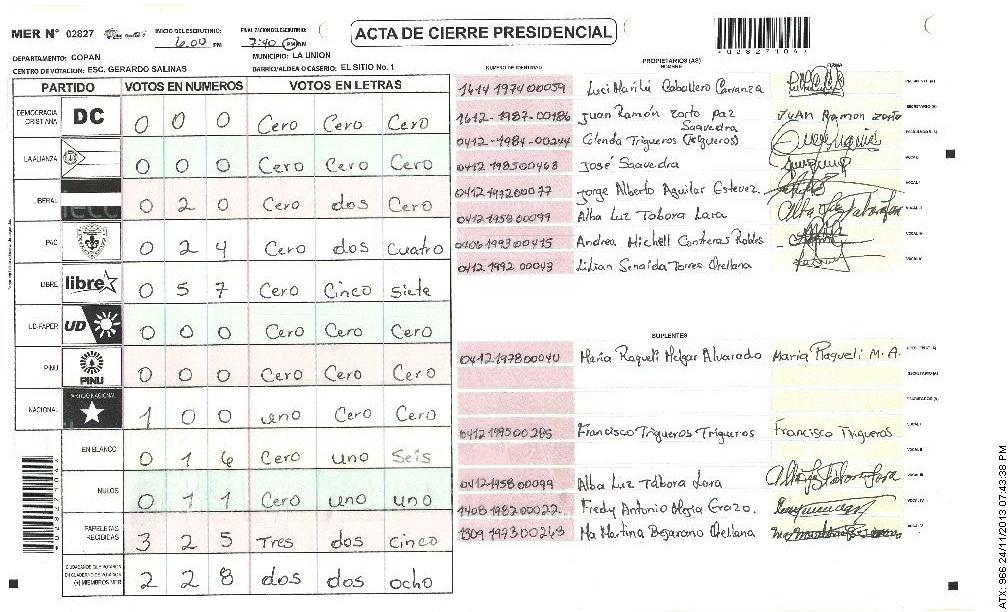 MER N° 02827
INICIO DEL ESCRUTINIO: 6:00 PM
FINALIZACION DEL ESCRUTINIO: 7:40 PM AM
ACTA DE CIERRE PRESIDENCIAL
DEPARTAMENTO: COPAN
MUNICIPIO: LA UNION
CENTRO DE VOTACION: ESC. GERARDO SALINAS
BARRIO/ALDEA O CASERIO: EL SITIO No. 1
PARTIDO VOTOS EN NUMEROS VOTOS EN LETRAS
DEMOCRACIA CRISTIANA DC 0 0 0 Cero Cero Cero
LA ALIANZA 0 0 0 Cero Cero Cero
LIBERAL 0 2 0 Cero dos Cero
PAC 0 2 4 Cero dos Cuatro
LIBRE libre 0 5 7 Cero Cinco Siete
UD-FAPER UD 0 0 0 Cero Cero Cero
PINU PINU 0 0 0 Cero Cero Cero
NACIONAL PARTIDO NACIONAL 1 0 0 uno Cero Cero
EN BLANCO 0 1 6 Cero uno Seis
NULOS 0 1 1 Cero uno uno
PAPELETAS RECIBIDAS 3 2 5 Tres dos Cinco
(+) MIEMBROS MER 2 2 8 dos dos ocho
NUMERO DE IDENTIDAD PROPIETARIOS (AS) NOMBRE FIRMA
1614 1974 00059 Luci Marilú Caballero Carranza
1612-1987-00186 Juan Ramón Zorto Paz JUAN Ramon Zorto
Saavedra
0412-1984-00244 Celenda Trigueros (Trigueros)
0412 1985 00468 José Saavedra
0412 1972 00077 Jorge Alberto Aguilar Estevez
0412 1958 00099 Alba Luz Tabora Lara
0406 1993 00415 Andrea Michell Contreras Robles
0412 1992 00043 Lilian Senaida Torres Orellana
SUPLENTES
0412 1978 00040 Maria Raqueli Melgar Alvarado Maria Raqueli M.A.
0412 1995 00285 Francisco Trigueros Trigueros Francisco Trigueros
0412 1958 00099 Alba Luz Tábora Lara
1408 1982 00022 Fredy Antonio Mejia Erazo.
1309 1973 00243 Ma Martina Bejarano Orellana
ATX: 966 24/11/2013 07:43:38 PM